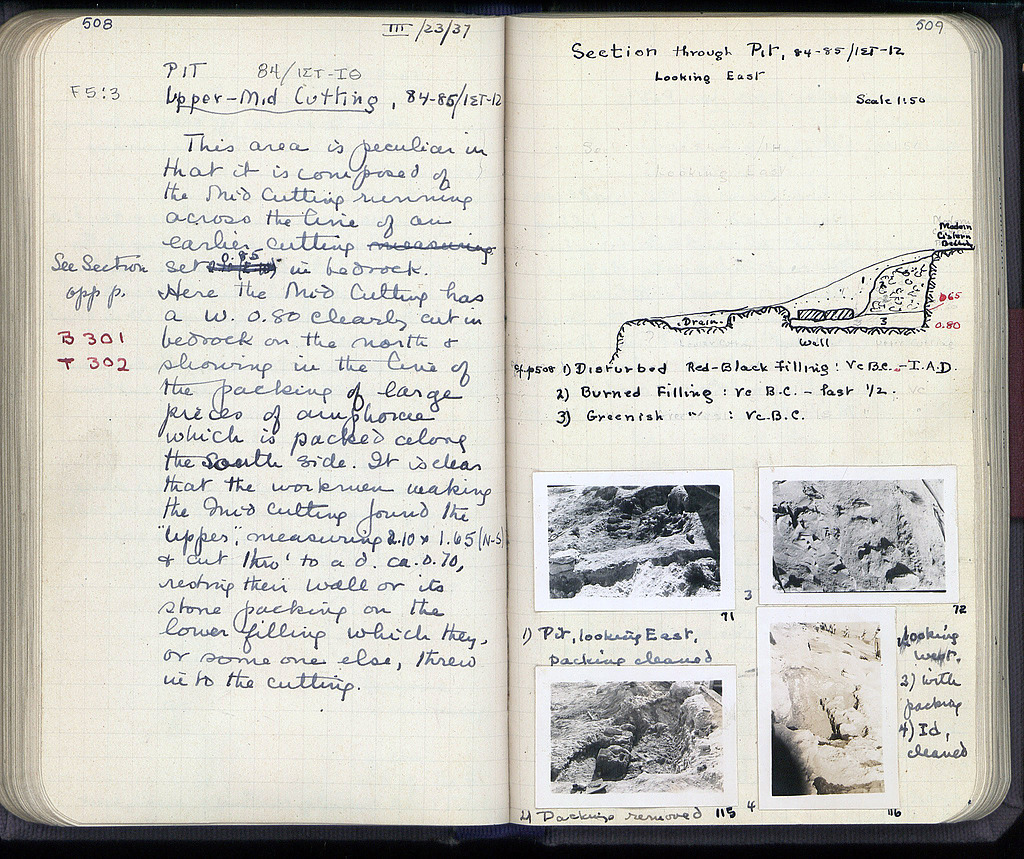 508
III/23/37
PIT 84/ΙΣΤ-ΙΘ
F5:3
Upper-Mid Cutting, 84-85/ΙΣΤ-12
This area is peculiar in
that it is composed of
the Mid Cutting running
across the line of an
earlier cutting measuring
See Section
opp p.
set 0.85 in bedrock.
Here the Mid Cutting has
a W. 0.80 clearly cut in
B 301
bedrock on the north &
T 302
showing in the line of
the packing of large
pieces of amphorae
which is packed along
the South side. It is clear
that the workmen making
the Mid cutting found the
"Upper", measuring 2.10 x 1.65 (N-S)
& cut thro' to a d. ca. 0.70,
resting their wall or its
stone packing on the
lower filling which they,
or some one else, threw
into the cutting.
509
Section through Pit, 84-85/ΙΣΤ-12
Looking East
Scale 1:50
Looking East
Modern
Cistern
1
2
3
0.65
0.80
Drain
Wall
cf. p508 1) Disturbed Red-Black filling: Vc B.C. - I A.D.
2) Burned Filling: Vc B.C. - last 1/2.
3) Greenish " : Vc B.C.
71
3
72
1) Pit, looking East,
packing cleaned
Looking
west.
3) with
packing
4) Id,
cleaned
2) Packing removed 115
4
116